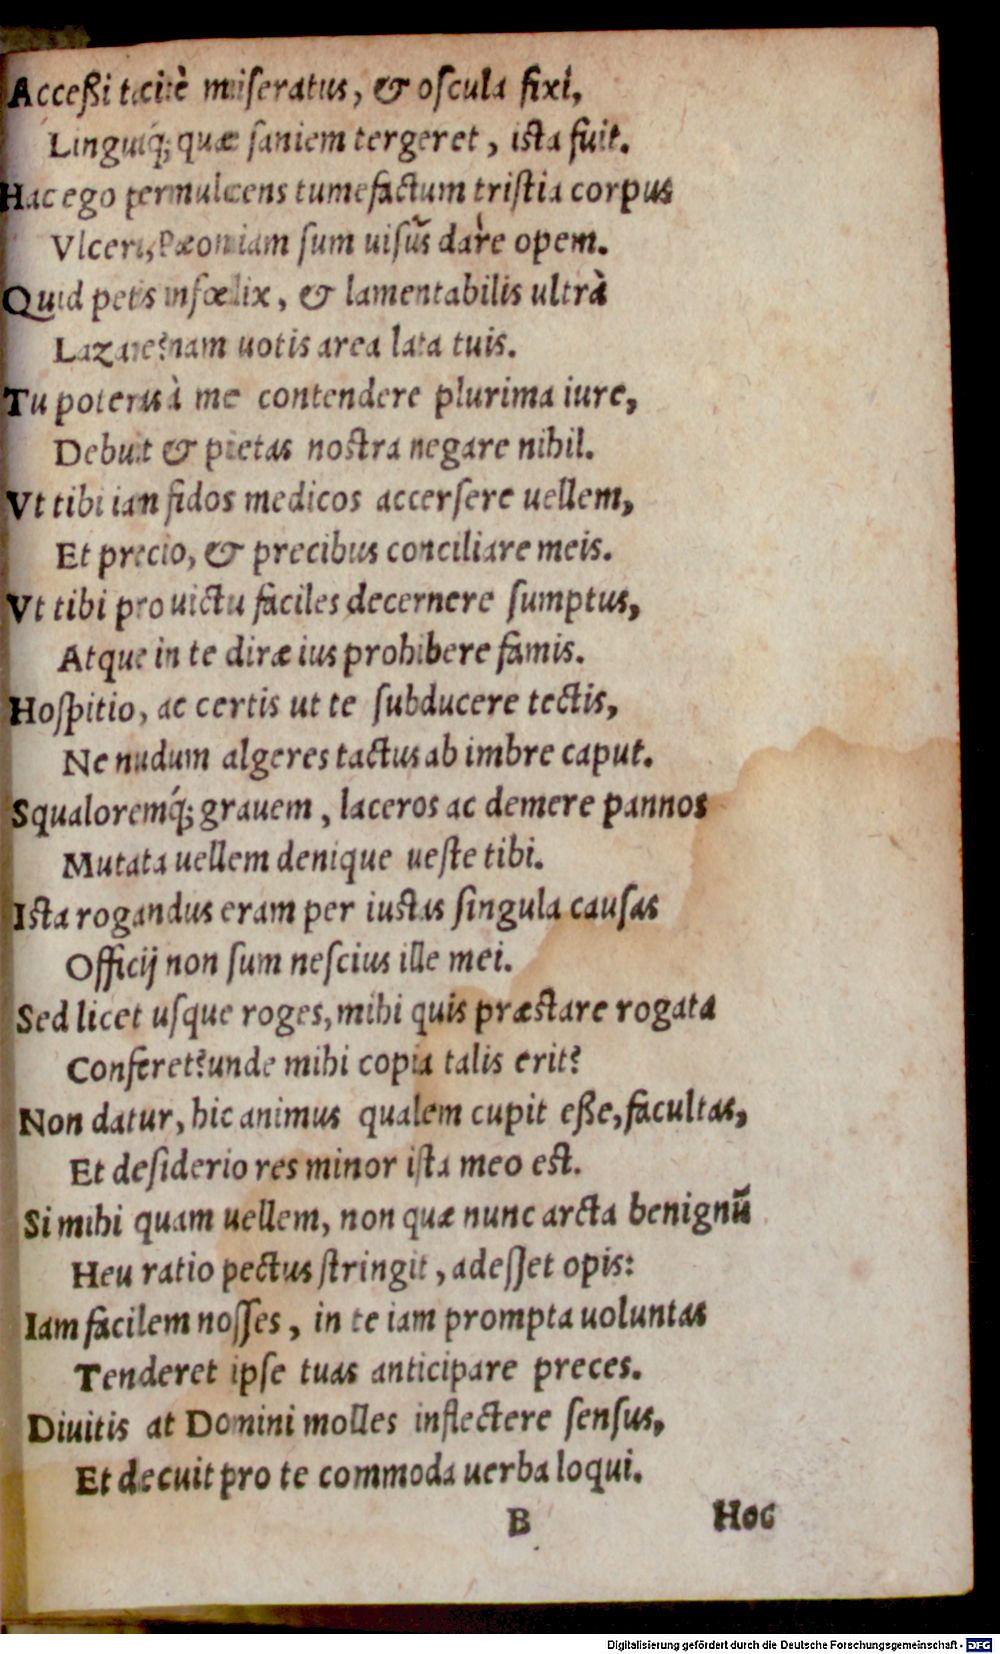 Acceßi tacitè miseratus, & oscula fixi,
Linguáq; quæ saniem tergeret, ista fuit.
Hac ego permulcens tumefactum tristia corpus
Vlceri, Pæoniam sum uisus dare opem.
Quid petis infœlix, & lamentabilis ultrà
Lazare? nam uotis area lata tuis.
Tu poteras à me contendere plurima iure,
Debuit & pietas nostra negare nihil.
Vt tibi iam fidos medicos accersere uellem,
Et precio, & precibus conciliare meis.
Vt tibi pro uictu faciles decernere sumptus,
Atque in te diræ ius prohibere famis.
Hospitio, ac certis ut te subducere tectis,
Ne nudum algeres tactus ab imbre caput.
Squaloremq́; grauem, laceros ac demere pannos
Mutata uellem denique ueste tibi.
Ista rogandus eram per iustas singula causas
Officij non sum nescius ille mei.
Sed licet usque roges, mihi quis præstare rogata
Conferet? unde mihi copia talis erit?
Non datur, hic animus qualem cupit eße, facultas,
Et desiderio res minor ista meo est.
Si mihi quam uellem, non quæ nunc arcta benignũ
Heu ratio pectus stringit, adesset opis:
Iam facilem nosses, in te iam prompta uoluntas
Tenderet ipse tuas anticipare preces.
Diuitis at Domini molles inflectere sensus,
Et decuit pro te commoda uerba loqui.
B Hoc
Digitalisierung gefördert durch die Deutsche Forschungsgemeinschaft - DFG